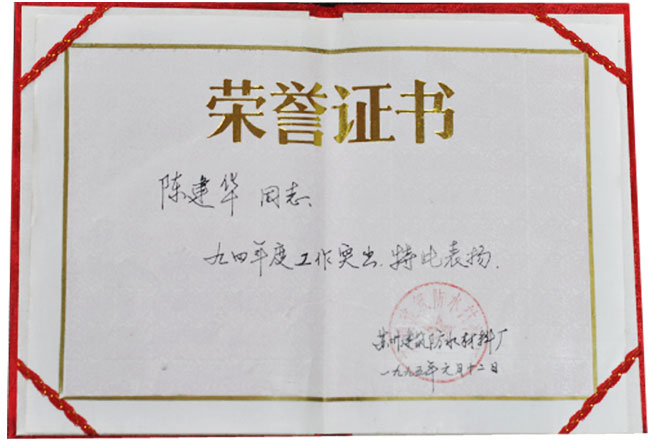 荣誉证书
陈建华 同志
九四年度工作突出.特此表扬.
建筑防水材料厂
一九九五年元月十二日
防水